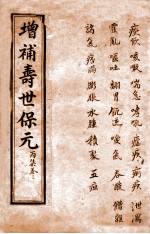 增補壽世保元
丙集卷三
痰飲 咳嗽 喘急 哮吼 瘧疾 痢疾 泄瀉
霍亂 嘔吐 翻胃 吞酸
諸氣 痞滿 膨脹 水腫 積聚 五疸